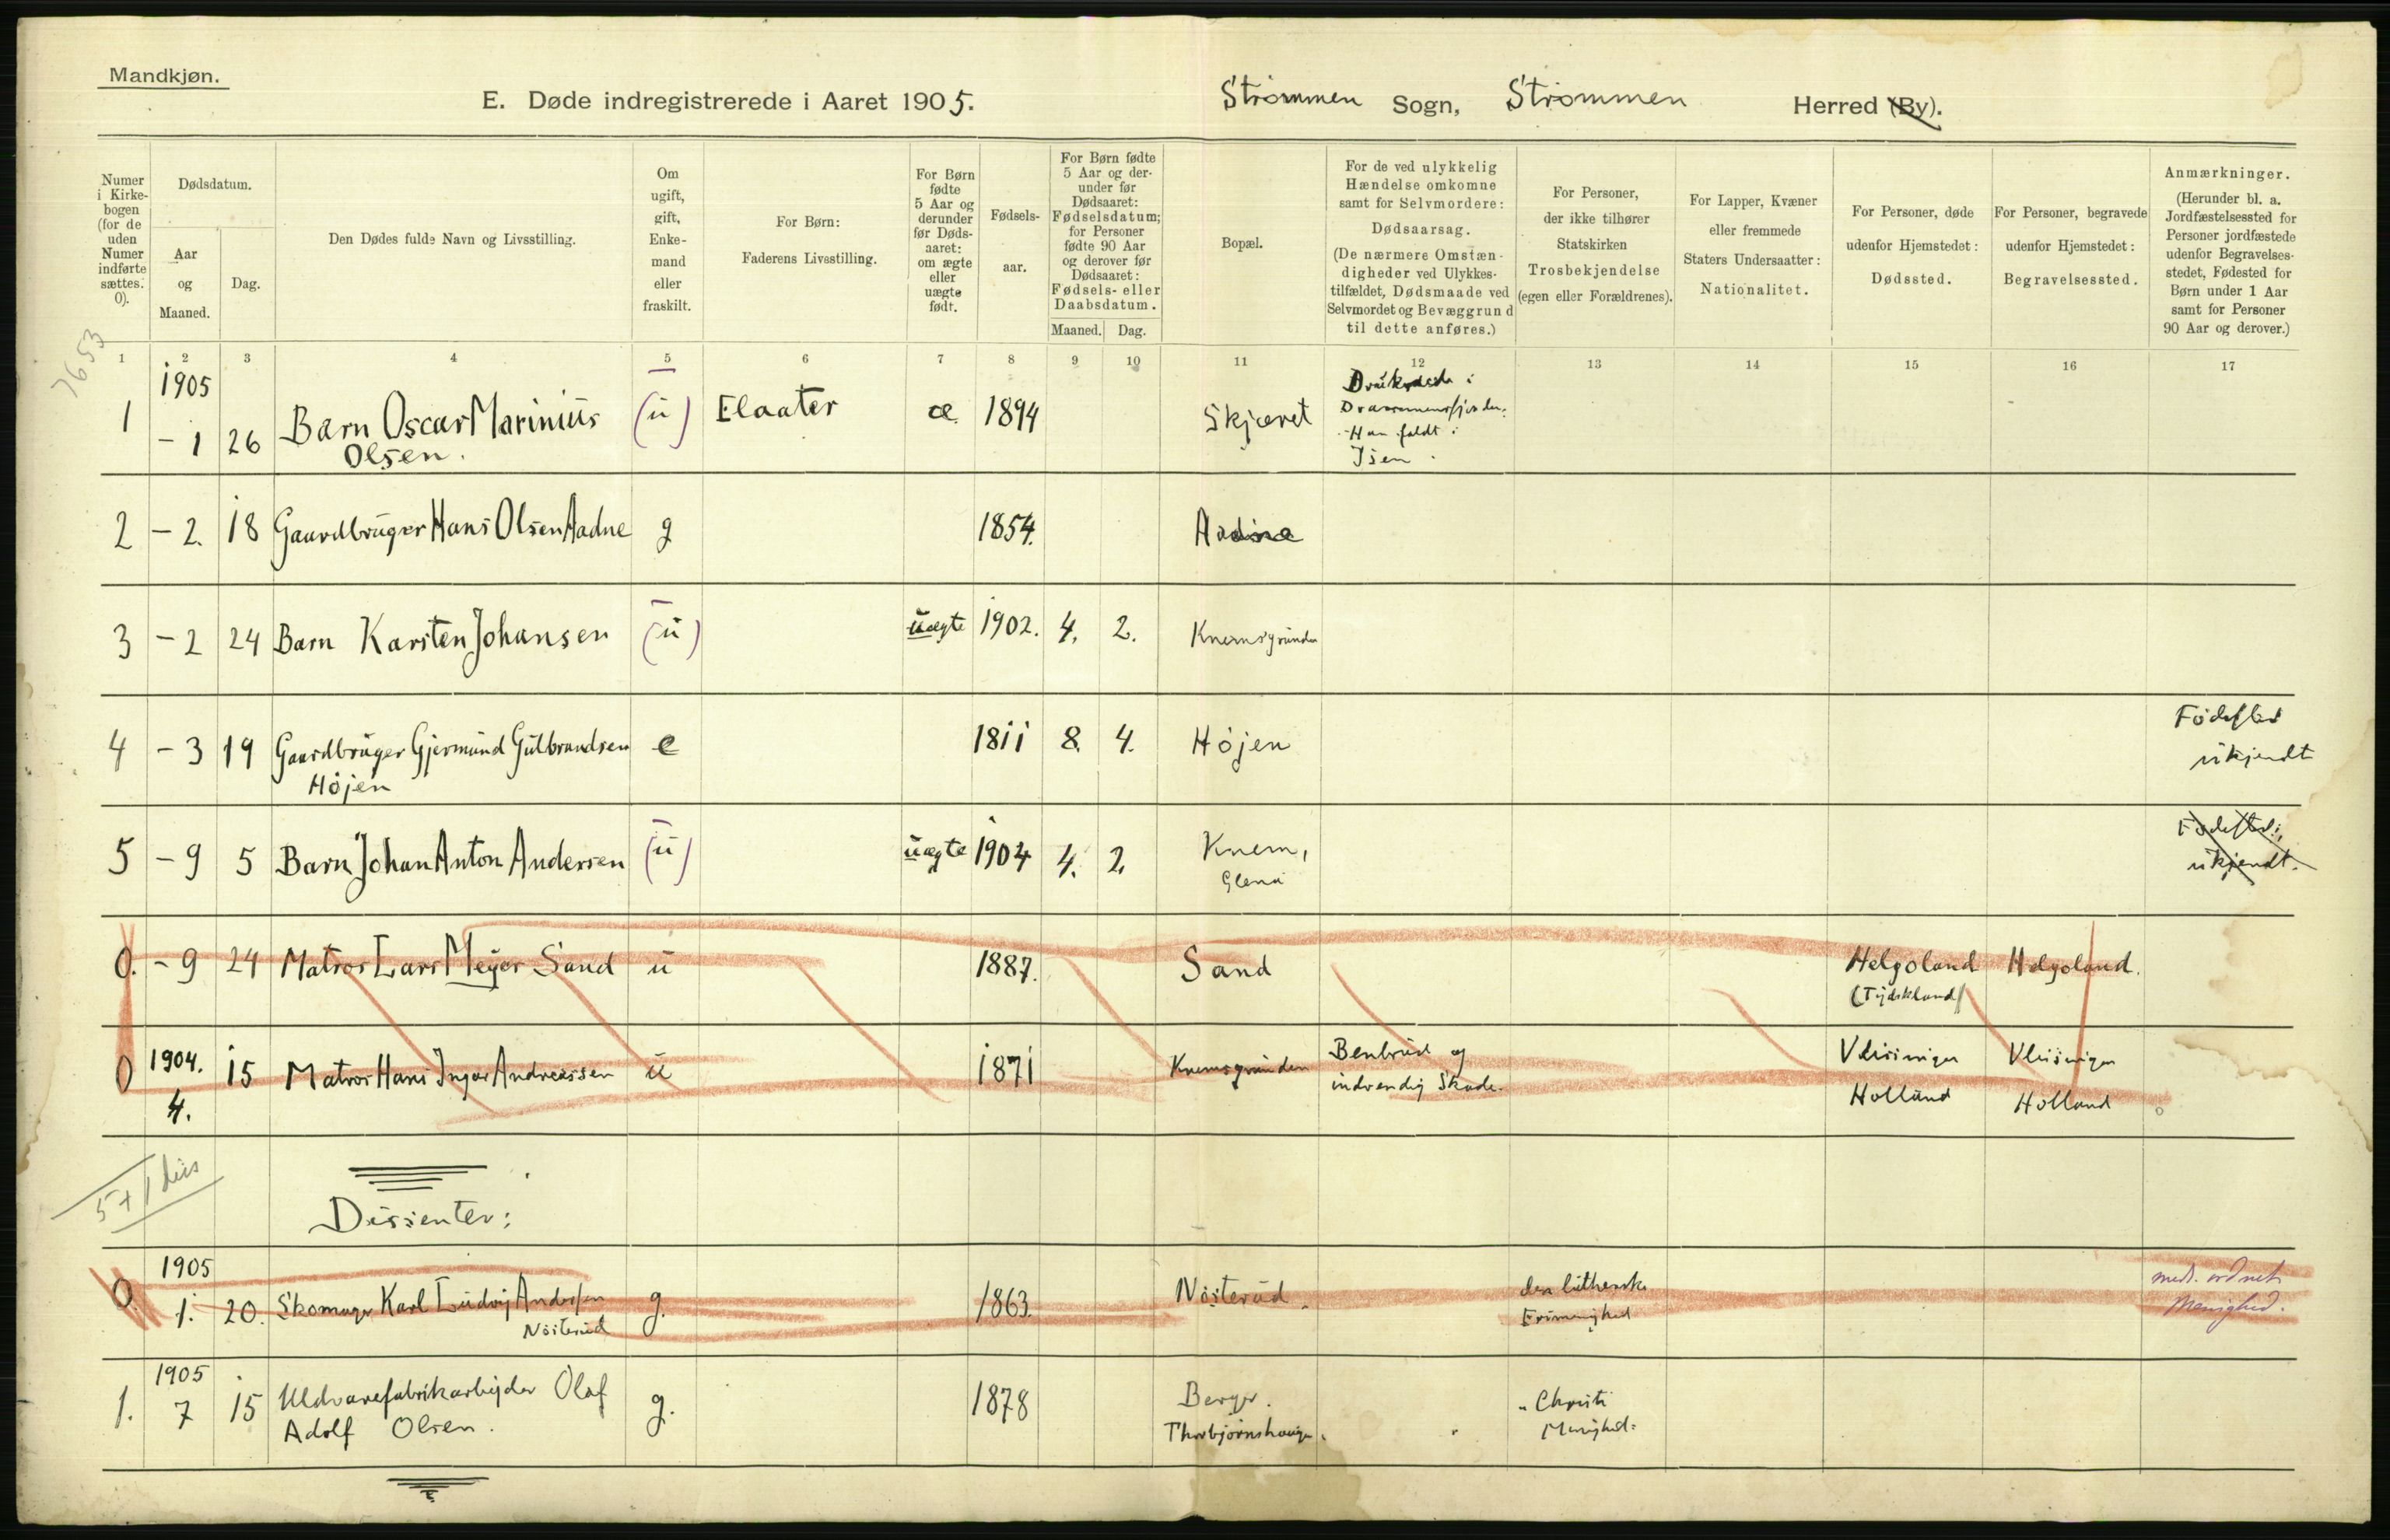 Mandkjøn.
E. Døde indregistrerede i Aaret 1905.
Strømmen Sogn, Strømmen Herred (By).
Numer i Kirke-bogen (for de uden Numer indførte sættes: 0).
Dødsdatum.
Aar og Maaned.
Dag.
Den Dødes fulde Navn og Livsstilling.
Om ugift, gift, Enke-mand eller fraskilt.
For Børn: Faderens Livsstilling.
For Børn fødte 5 Aar og derunder før Døds-aaret: om ægte eller uægte født.
Fødsels-aar.
For Børn fødte 5 Aar og der-under før Dødsaaret: Fødselsdatum; for Personer fødte 90 Aar og derover før Dødsaaret: Fødsels- eller Daabsdatum.
Maaned. Dag.
Bopæl.
For de ved ulykkelig Hændelse omkomne samt for Selvmordere: Dødsaarsag. (De nærmere Omstæn-digheder ved Ulykkes-tilfældet, Dødsmaade ved Selvmordet og Bevæggrund til dette anføres.)
For Personer, der ikke tilhører Statskirken Trosbekjendelse (egen eller Forældrenes).
For Lapper, Kvæner eller fremmede Staters Undersaatter: Nationalitet.
For Personer, døde udenfor Hjemstedet: Dødssted.
For Personer, begravede udenfor Hjemstedet: Begravelsessted.
Anmærkninger. (Herunder bl. a. Jordfæstelsessted for Personer jordfæstede udenfor Begravelses-stedet, Fødested for Børn under 1 Aar samt for Personer 90 Aar og derover.)
7653
1 2 3 4 5 6 7 8 9 10 11 12 13 14 15 16 17
1905
1 - 1 26 Barn Oscar Marinius Olsen. (u) æ 1894 Skjæret
Drammensfjorden. Han faldt i Isen.
2 - 2. 18 Gaardbruger Hans Olsen Aadne g 1854. Aadne
3 - 2 24 Barn Karsten Johansen (u) uægte 1902. 4. 2. Knemsgrunden
4 - 3 19 Gaardbruger Gjermund Gulbrandsen Højen e 1811 8. 4. Højen Fødested ukjendt
5 - 9 5 Barn Johan Anton Andersen (u) uægte 1904 4. 2. Knem, Fødested: ukjendt.
0. - 9 24 Matros Lars Meyer Sand u 1887. Sand Helgoland (Tydskland) Helgoland.
0 1904. 4. 15 Matros Hans Ingvar Andreassen u 1871 Knemsgrunden Benbrud og indvendig Skade. Vlissingen Holland Vlissingen Holland
5+1 diss
Dissenter:
0. 1905 1. 20. Skomager Karl Ludvig Andersen Nösterud g. 1863. Nösterud. den luthersk Frimenighed
menighed.
1. 1905 7 15 Uldvarefabrikarbejder Olaf Adolf Olsen. g. 1878 Berger. Thorbjørnshaugen. Christi Menighed.